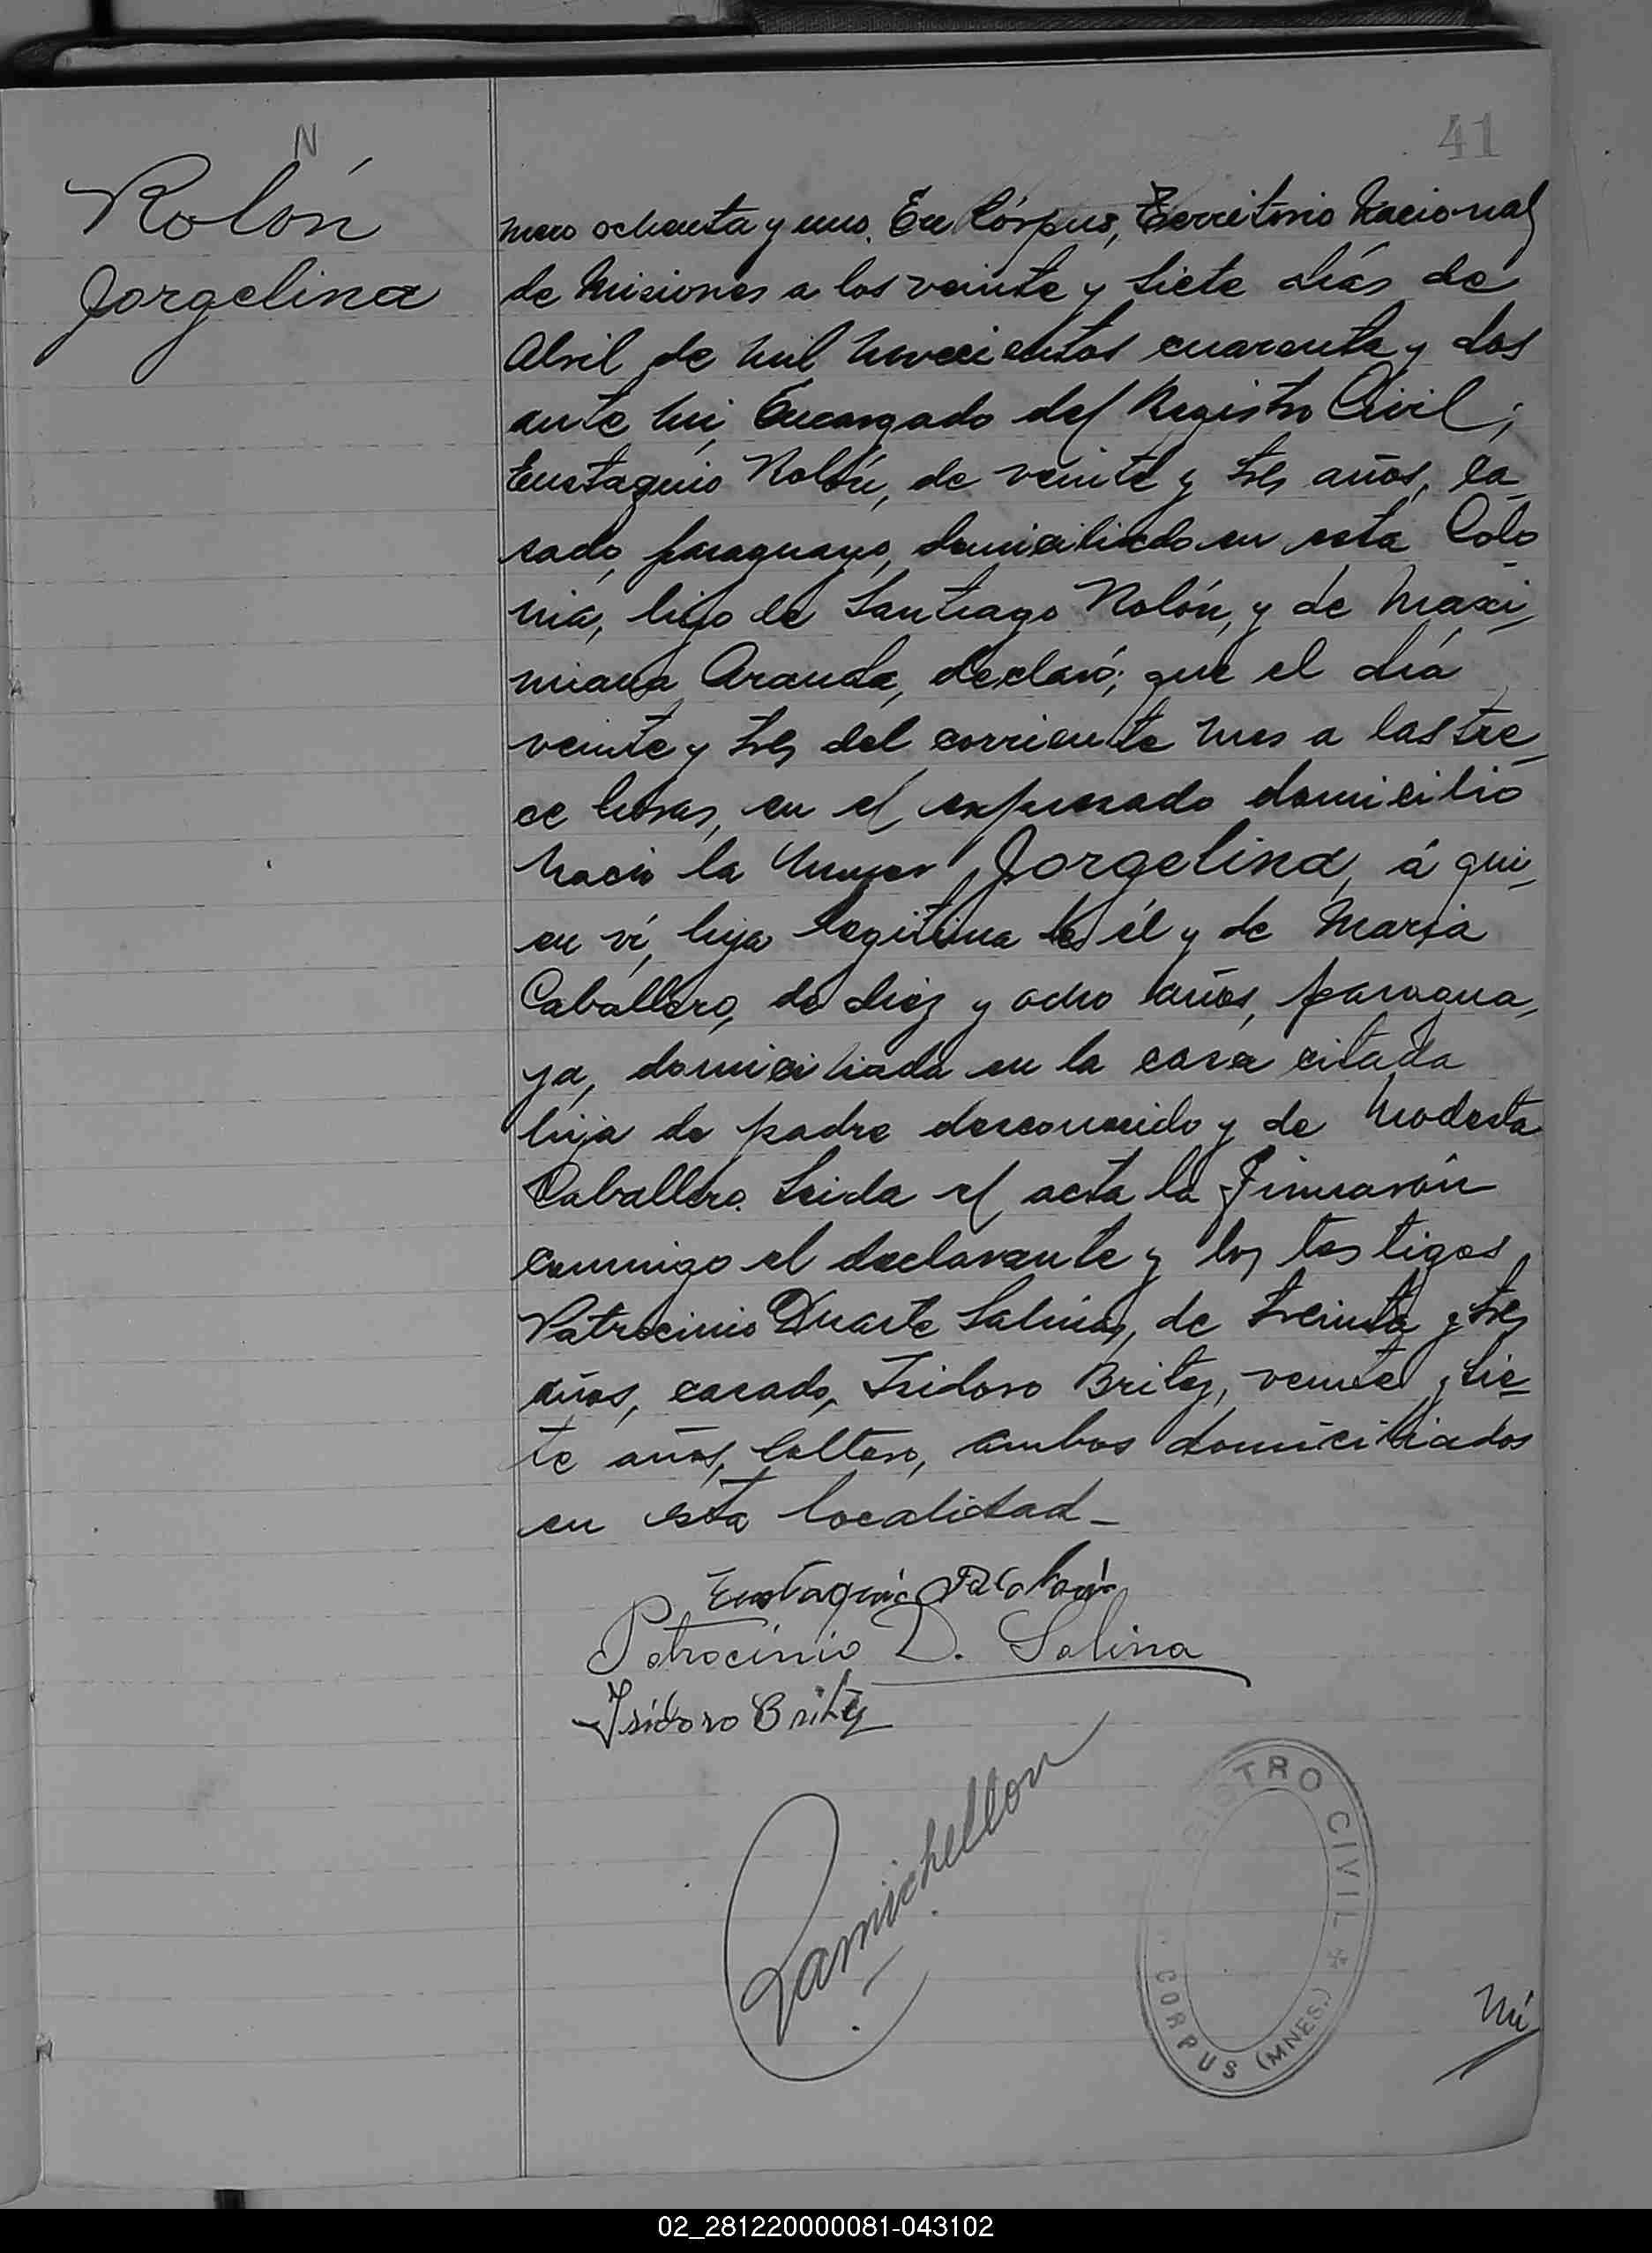 N
41
Rolón
Jorgelina
mero ochenta y uno. En Córpus, Territorio Nacional
de Misiones a los veinte y siete días de
Abril de mil novecientos cuarenta y dos
ante mi, Encargado del Registro Civil;
Eustaquio Rolón, de veinte y tres años, ca
sado, paraguayo, domiciliado en esta Colo
nia, hijo de Santiago Rolón, y de Maxi
miana Aranda, declaró; que el día
veinte y tres del corriente mes a las tre
ce horas, en el expresado domicilio
nació la mujer Jorgelina, á qui
en ví, hija legitima de él y de María
Caballero, de diez y ocho años, paragua
ya, domiciliada en la casa citada
hija de padre desconocido y de Modesta
Caballero. Leida el acta la firmarón
conmigo el declarante y los testigos
Patrocinio Duarte Salinas, de treinta y tres
años, casado, Isidoro Britez, veinte y sie
te años, soltero, ambos domiciliados
en esta localidad_
Eustaquio Rolón
Patrocinio D. Salina
Isidoro Britez
GISTRO CIVIL * CORPUS (MNES.)
Nú
02_281220000081-043102